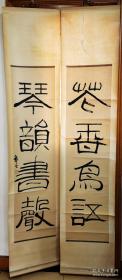 花香鳥語
琴韻書聲